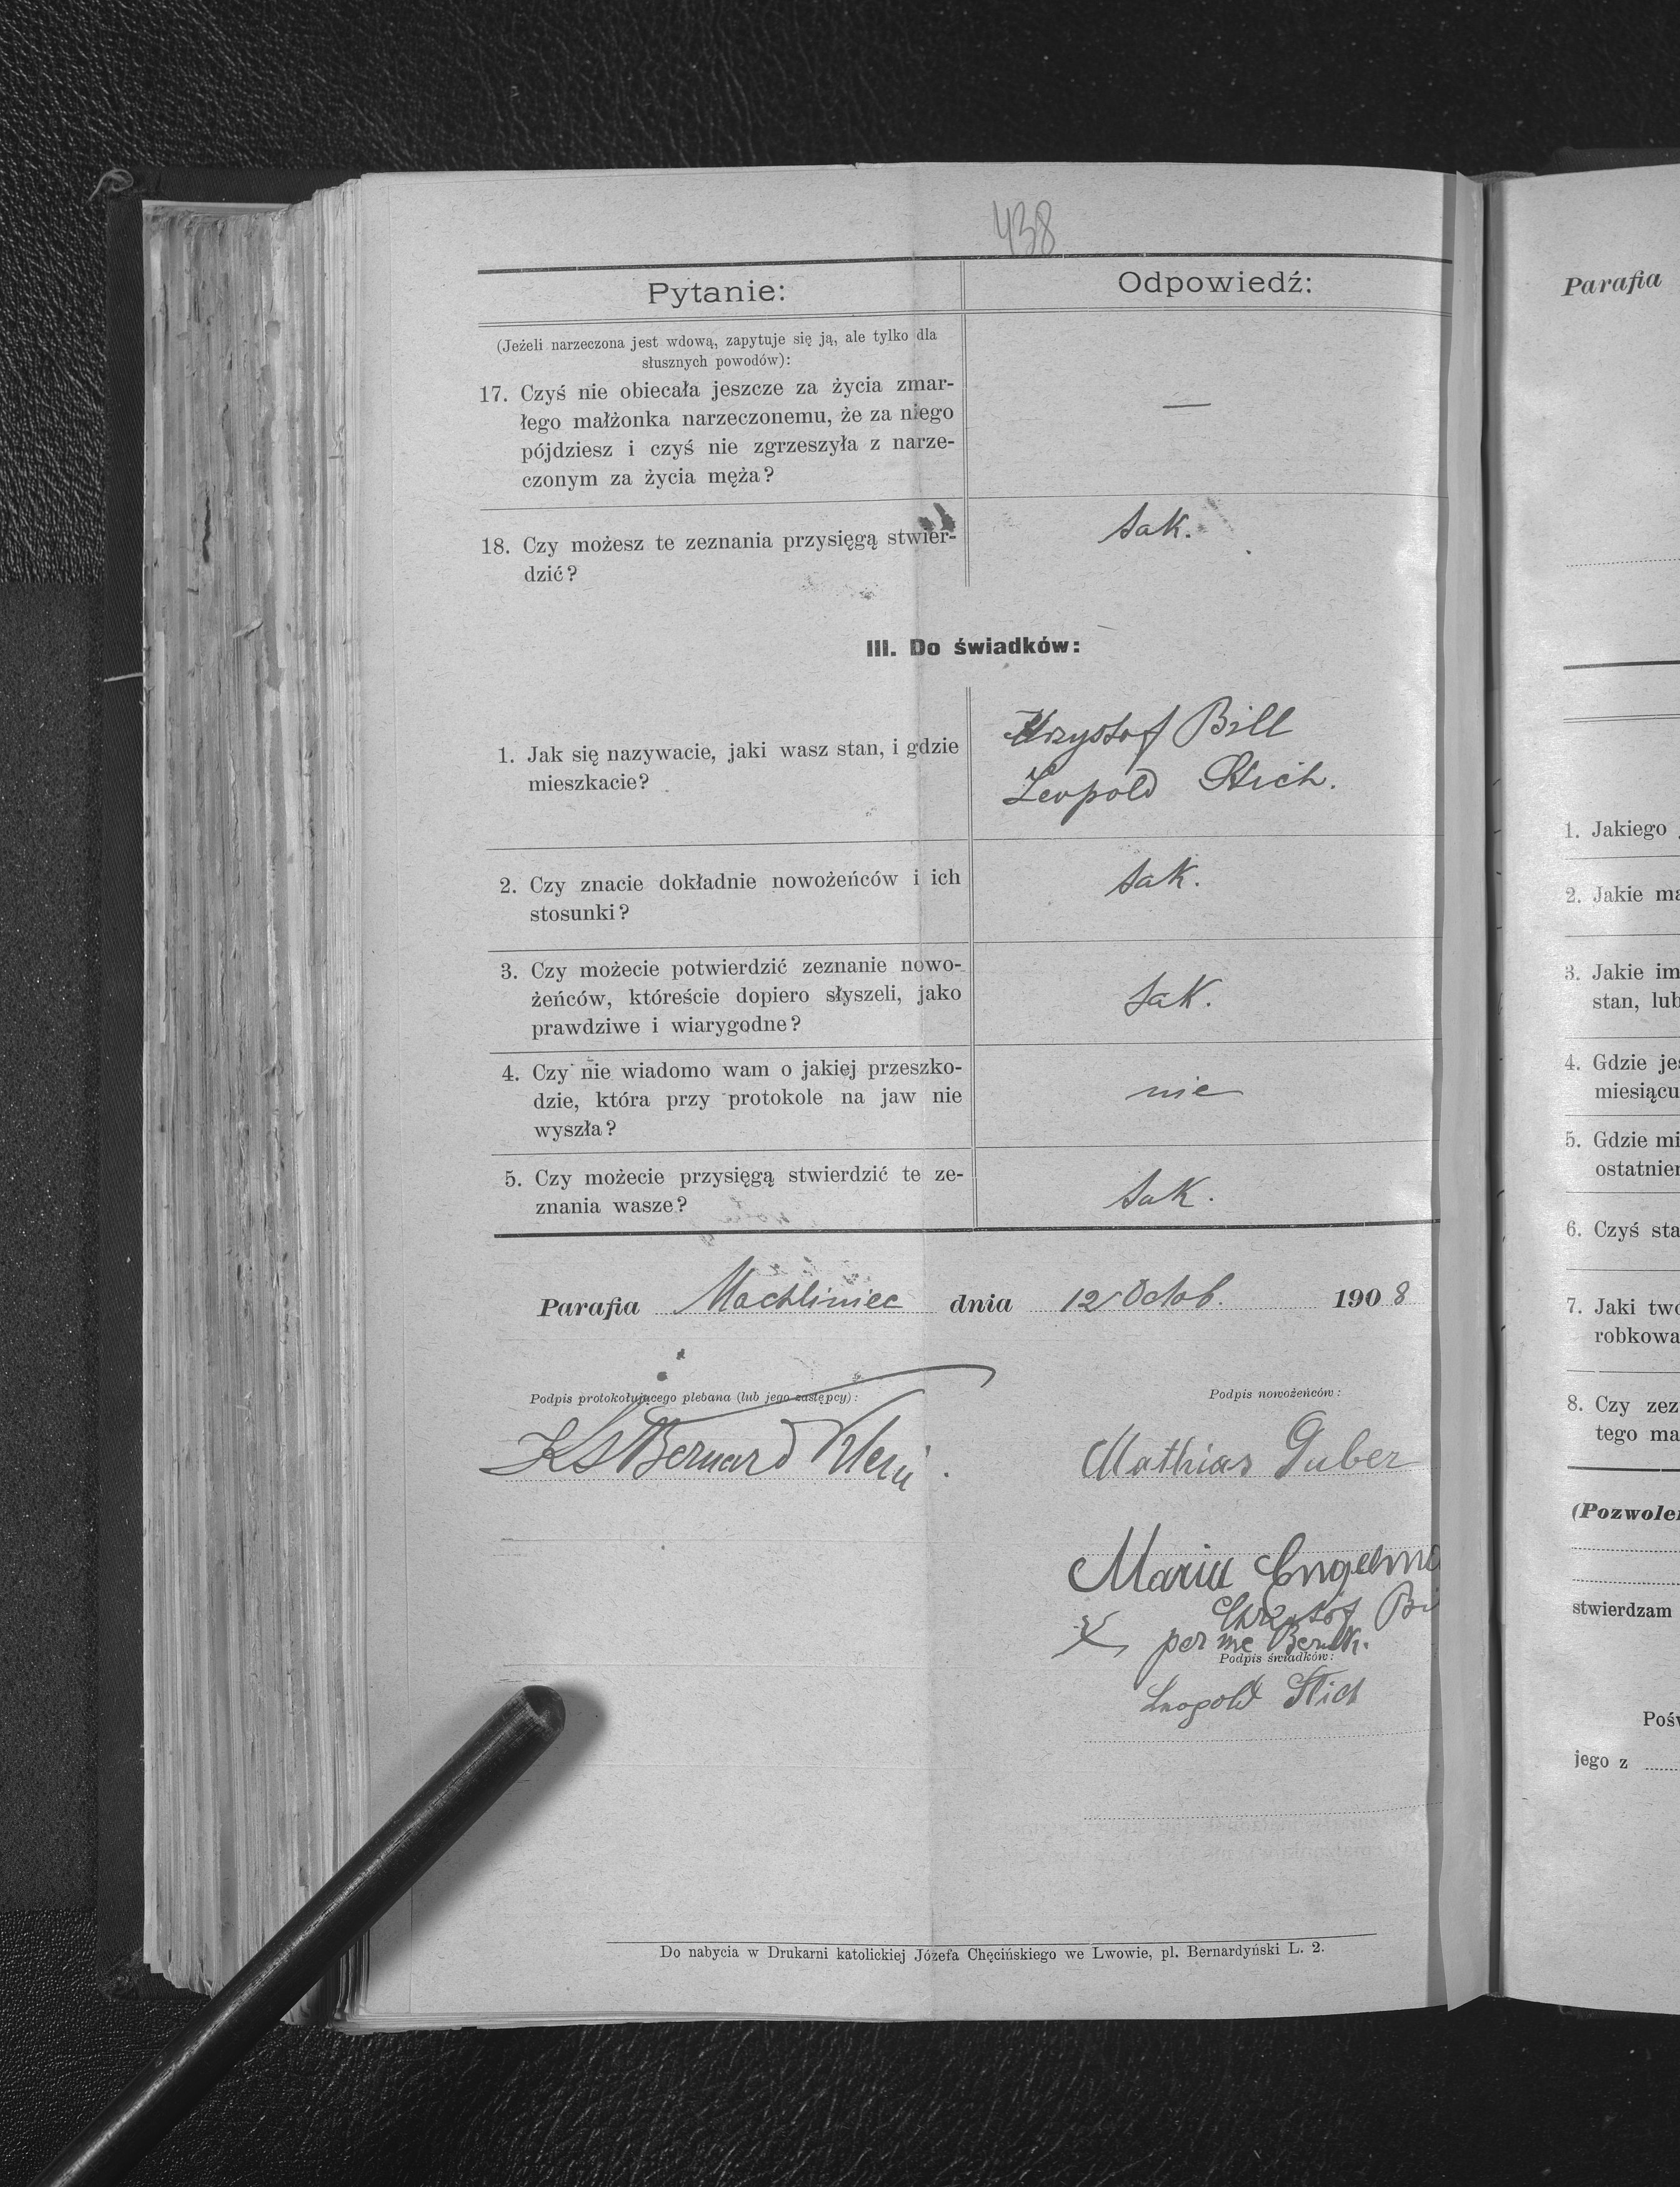 438
Pytanie: Odpowiedź:
(Jeżeli narzeczona jest wdową, zapytuje się ją, ale tylko dla
słusznych powodów):
17. Czyś nie obiecała jeszcze za życia zmar-
łego małżonka narzeczonemu, że za niego
pójdziesz i czyś nie zgrzeszyła z narze-
czonym za życia męża? —
18. Czy możesz te zeznania przysięgą stwier- tak.
dzić?
III. Do świadków:
1. Jak się nazywacie, jaki wasz stan, i gdzie Krzystof Bill
mieszkacie? Leopold Stich.
2. Czy znacie dokładnie nowożeńców i ich tak.
stosunki?
3. Czy możecie potwierdzić zeznanie nowo-
żeńców, któreście dopiero słyszeli, jako tak.
prawdziwe i wiarygodne?
4. Czy nie wiadomo wam o jakiej przeszko-
dzie, która przy protokole na jaw nie nie
wyszła?
5. Czy możecie przysięgą stwierdzić te ze-
znania wasze? tak.
Parafia Machliniec dnia 12 Octob. 1908
Podpis protokołującego plebana (lub jego zastępcy): Podpis nowożeńców:
Ks Bernard Mathias Huber
Maria Engelm
Bi
per me
Podpis świadków:
Leopold Stich
Do nabycia w Drukarni katolickiej Józefa Chęcińskiego we Lwowie, pl. Bernardyński L. 2.
Parafia
1. Jakiego
2. Jakie ma
3. Jakie im
stan, lub
4. Gdzie jes
miesiącu
5. Gdzie mi
ostatnie
6. Czyś sta
7. Jaki two
robkowa
8. Czy zez
tego ma
(Pozwole
stwierdzam
Pośw
jego z